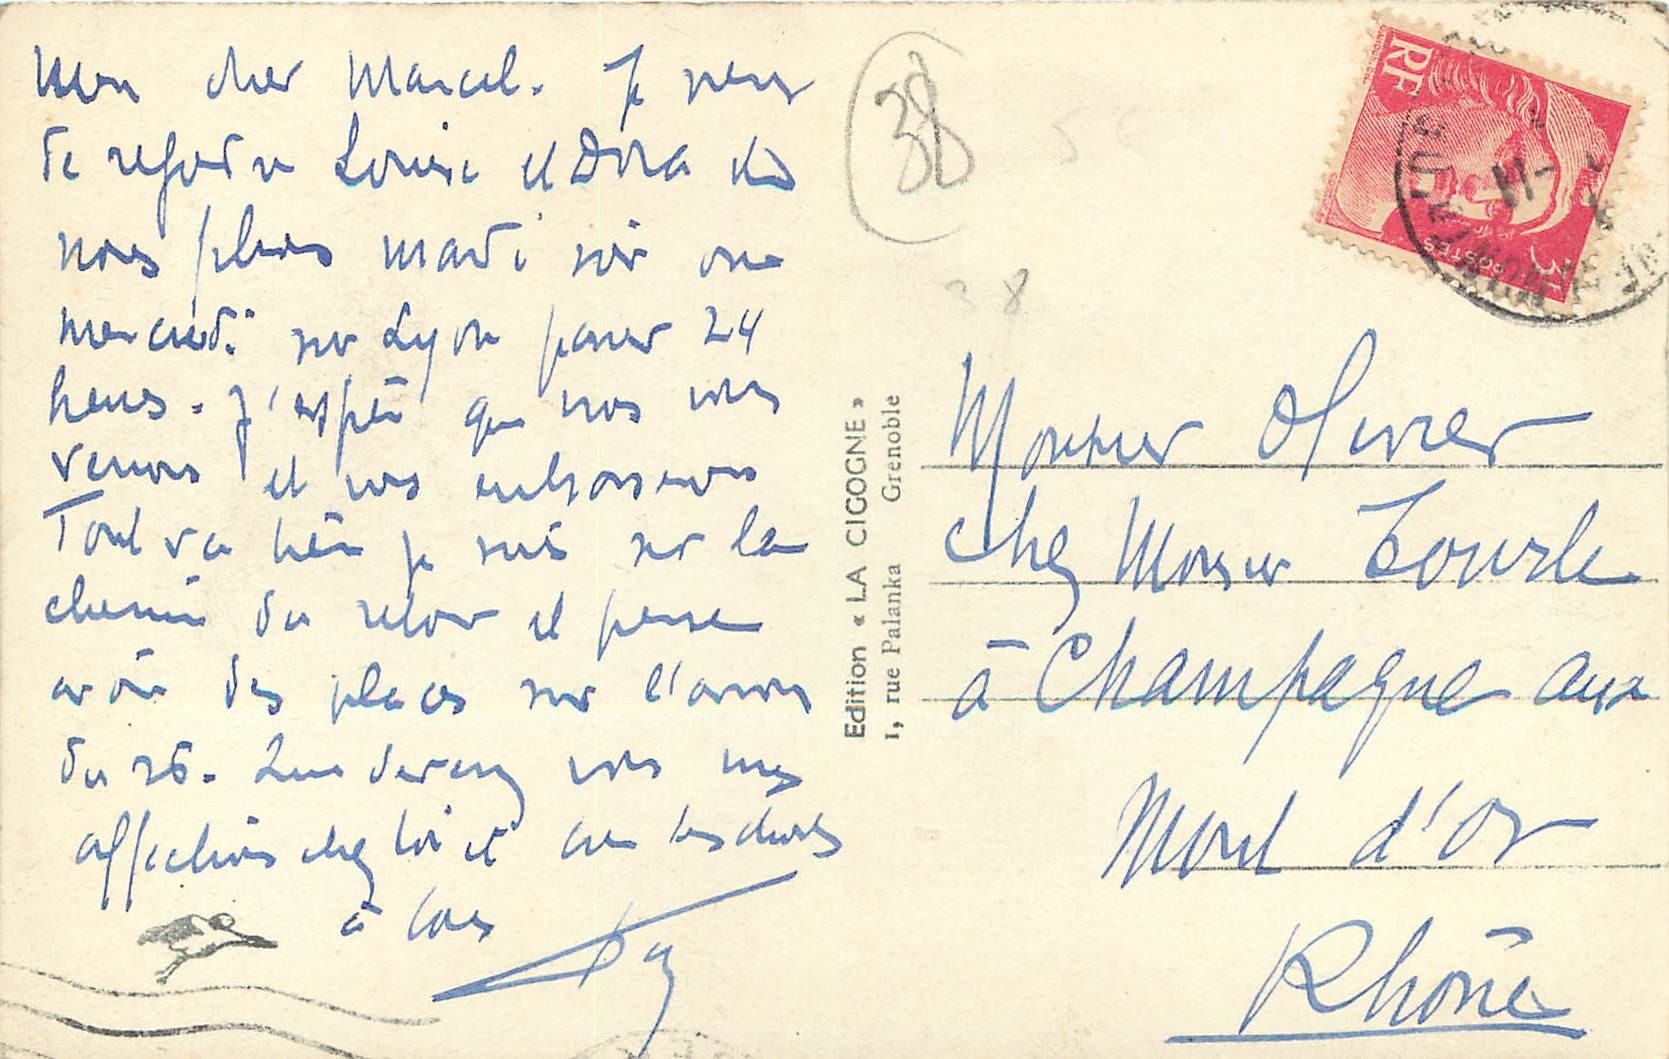 Mon cher Marcel. Je viens
de rejoindre Louise et Dora et
nous filons mardi soir ou
mercredi sur Lyon passer 24
heures. J'espère que nous vous
verrons et vous embrasserons
Tout va bien je suis sur le
chemin du retour et pense
avoir des places sur l'avion
du 26.
affections chez toi et
à tous
38
38
5€
Edition « LA CIGOGNE »
1, rue Palanka Grenoble
RF
POSTES
3F
Monsieur Olivier
chez Monsieur
à Champagne aux
Mont d'Or
Rhône